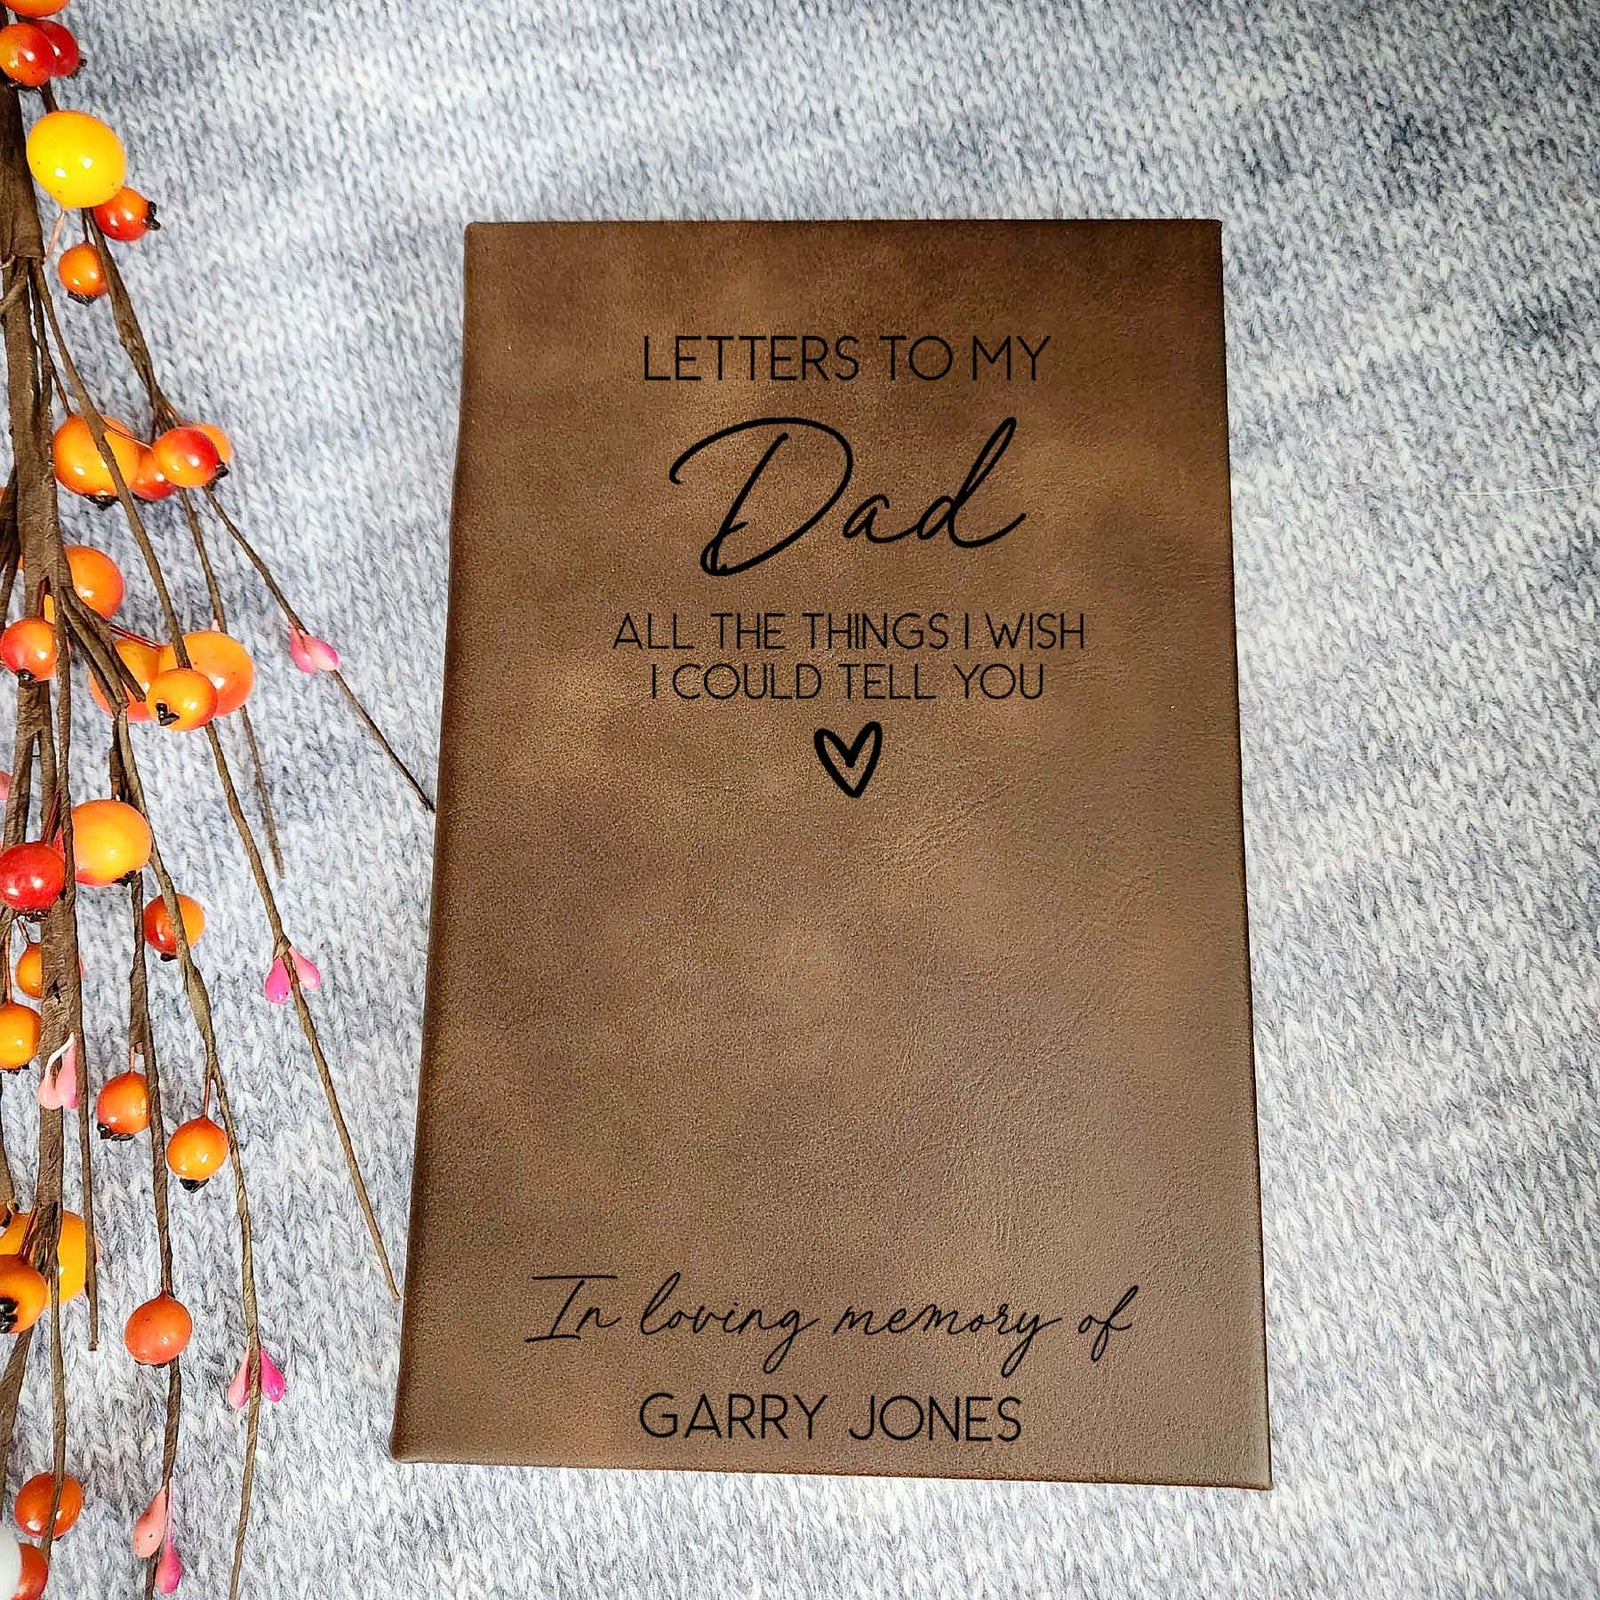 LETTERS TO MY
Dad
ALL THE THINGS I WISH
I COULD TELL YOU
In loving memory of
GARRY JONES